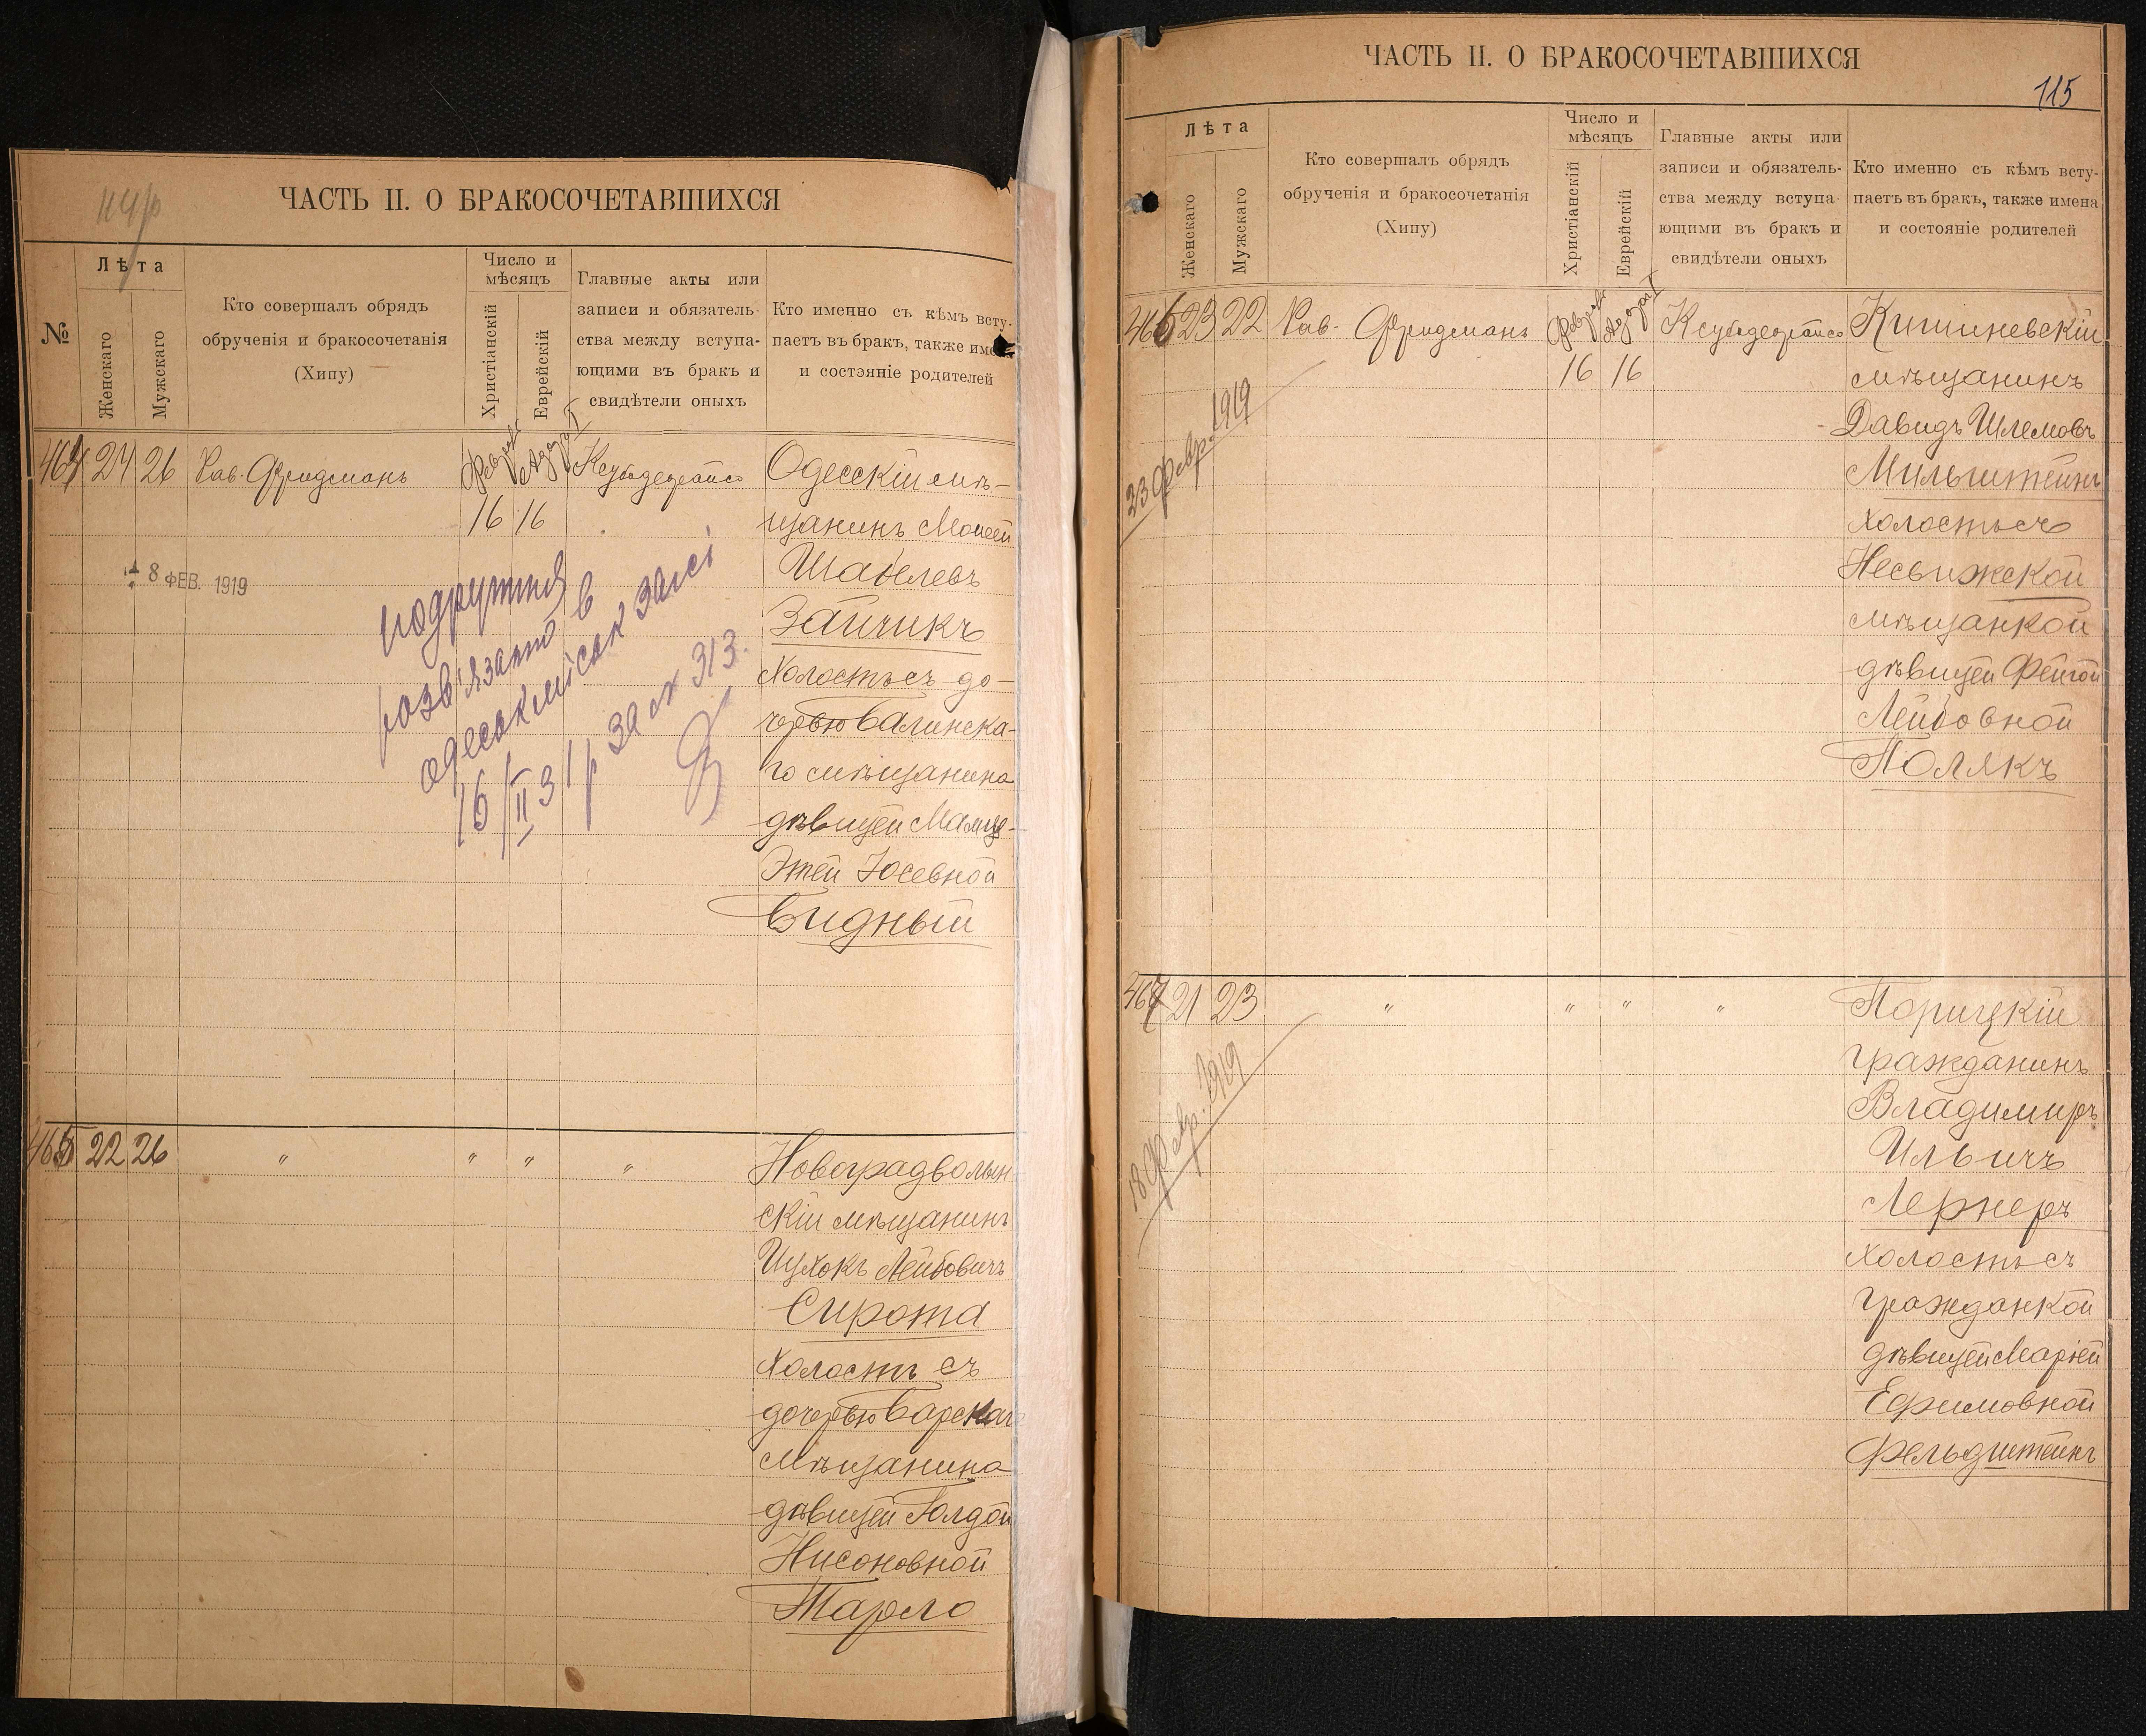 ЧАСТЬ II. О БРАКОСОЧЕТАВШИХСЯ
№
Лѣта
Женскаго
Мужскаго
Кто совершалъ обрядъ
обрученія и бракосочетанія
(Хипу)
Число и
мѣсяцъ
Христіанскій
Еврейскій
Главные акты или
записи и обязатель-
ства между вступа-
ющими въ бракъ и
свидѣтели оныхъ
Кто именно съ кѣмъ всту-
паетъ въ бракъ, также имена
и состояніе родителей
464 24 26 Рав. Фридманъ
16 16
8 ФЕВ. 1919
Одесскій мѣ-
щанинъ Моисей
Шаблевъ
Зайчикъ
холостъ съ до-
черью Балинска-
го мѣщанина
дѣвицей
Этей Іосевной
Видный
подружжя
розв'язано в
одеськ міськ загсі
16/II 31 р за № 313.
465 22 26 " " " "
Новоградволын
скій мѣщанинъ
Ицхокъ Лейбовичъ
Сирота
холостъ съ
дочерью Барскаго
мѣщанина
дѣвицей Голдой
Нисоновной
Тарло
ЧАСТЬ II. О БРАКОСОЧЕТАВШИХСЯ
115
Лѣта
Женскаго
Мужскаго
Кто совершалъ обрядъ
обрученія и бракосочетанія
(Хипу)
Число и
мѣсяцъ
Христіанскій
Еврейскій
Главные акты или
записи и обязатель-
ства между вступа-
ющими въ бракъ и
свидѣтели оныхъ
Кто именно съ кѣмъ всту-
паетъ въ бракъ, также имена
и состояніе родителей
466 23 22 Рав. Фридманъ
16 16
23 Февр. 1919
Кишиневскій
мѣщанинъ
Давидъ Шлемовъ
Мильштейнъ
холостъ съ
Несвижской
мѣщанкой
дѣвицей Фейгой
Лейбовной
Полякъ
467 21 23 " " " "
18 Февр. 1919
Порицкій
гражданинъ
Владимиръ
Ильичъ
Лернеръ
холостъ съ
гражданкой
дѣвицей Маріей
Ефимовной
Фельдштейнъ